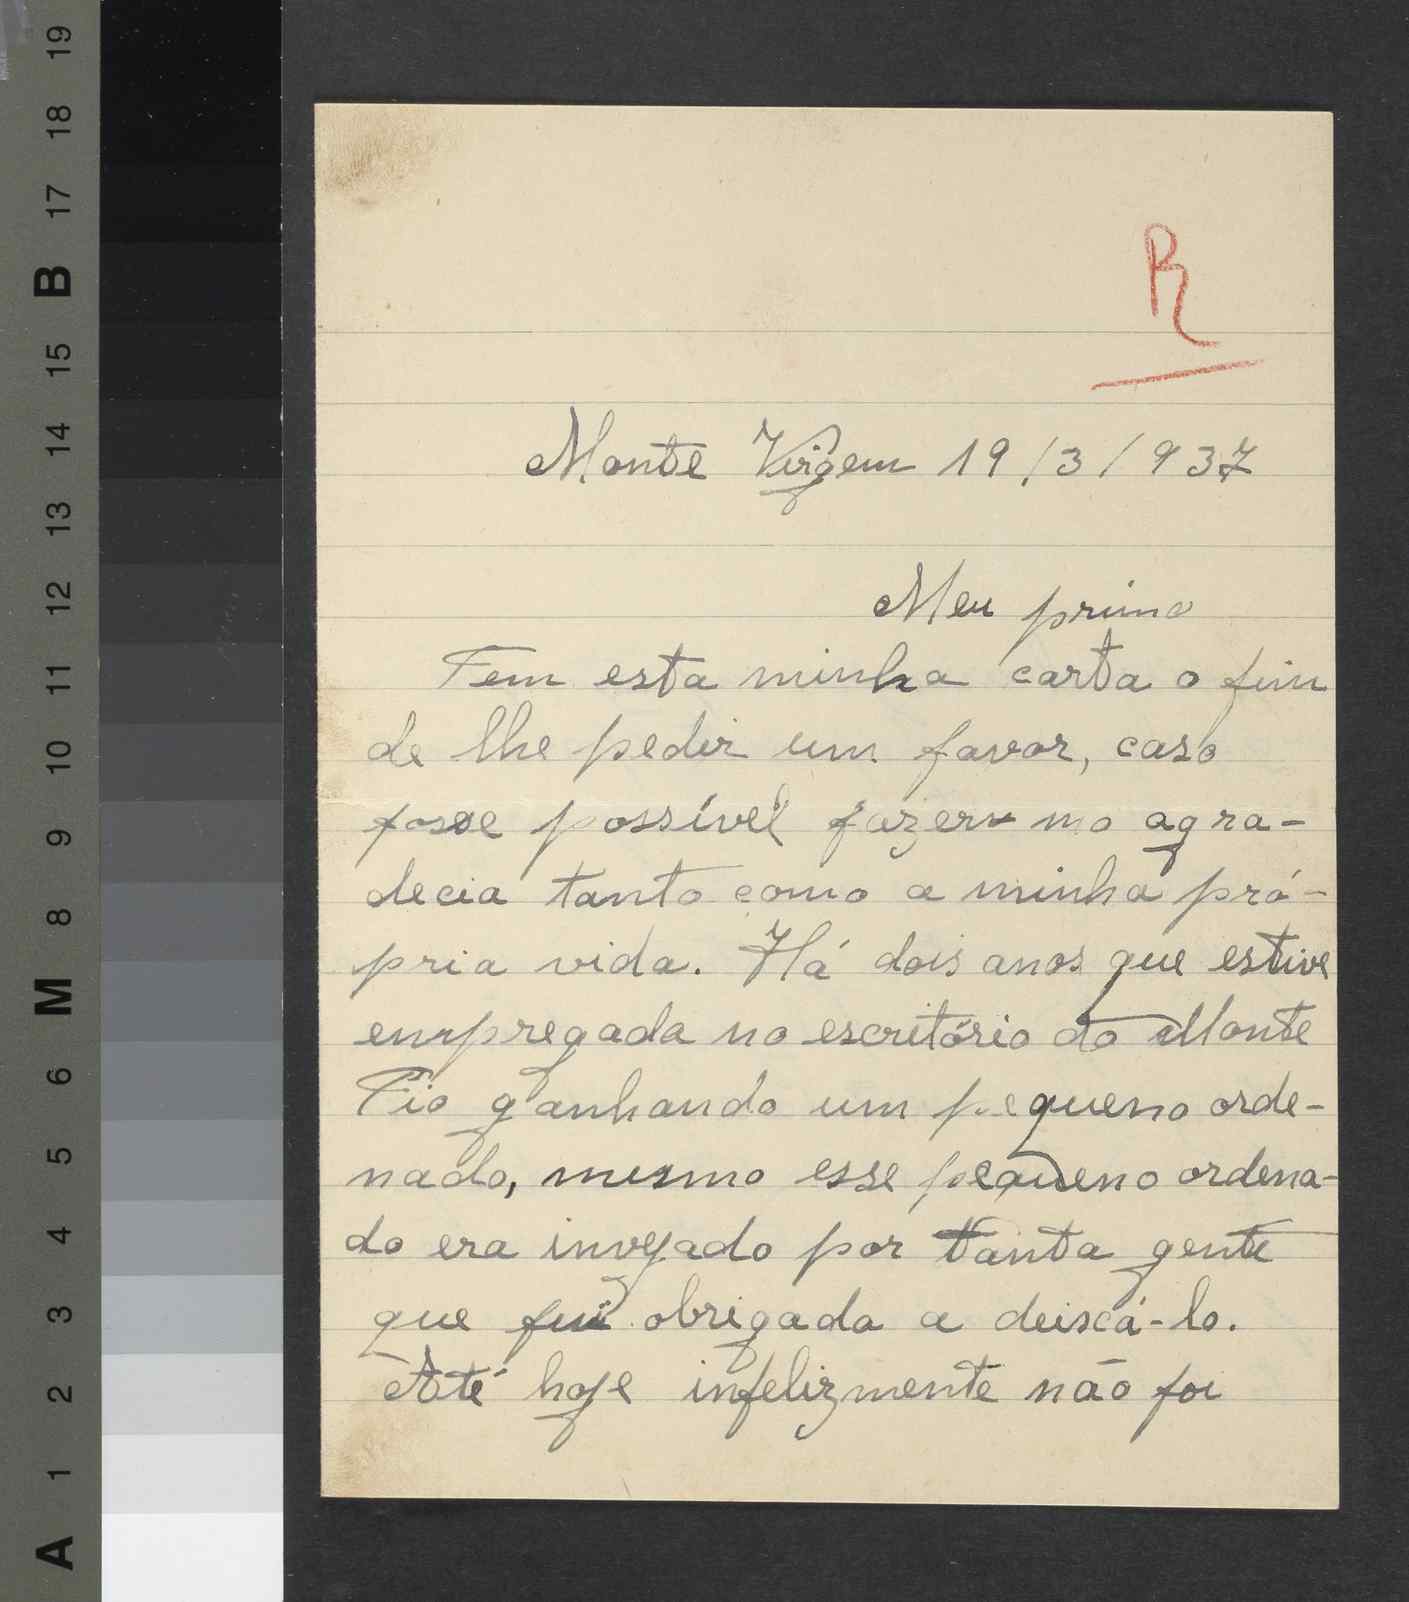 19
18
17
B
15
14
13
12
11
10
9
8
M
6
5
4
3
2
1
A
R
Monte Virgem 19/3/937
Meu primo
Tem esta minha carta o fim
de lhe pedir um favor, caso
fosse possível fazerv mo agra-
decia tanto como a minha pró-
pria vida. Há dois anos que estive
empregada no escritório do Monte
Fio ganhando um pequeno orde-
nado, mesmo esse pequeno ordena-
do era invejado por tanta gente
que fui obrigada a deiscá-lo.
Até hoje infelizmente não foi